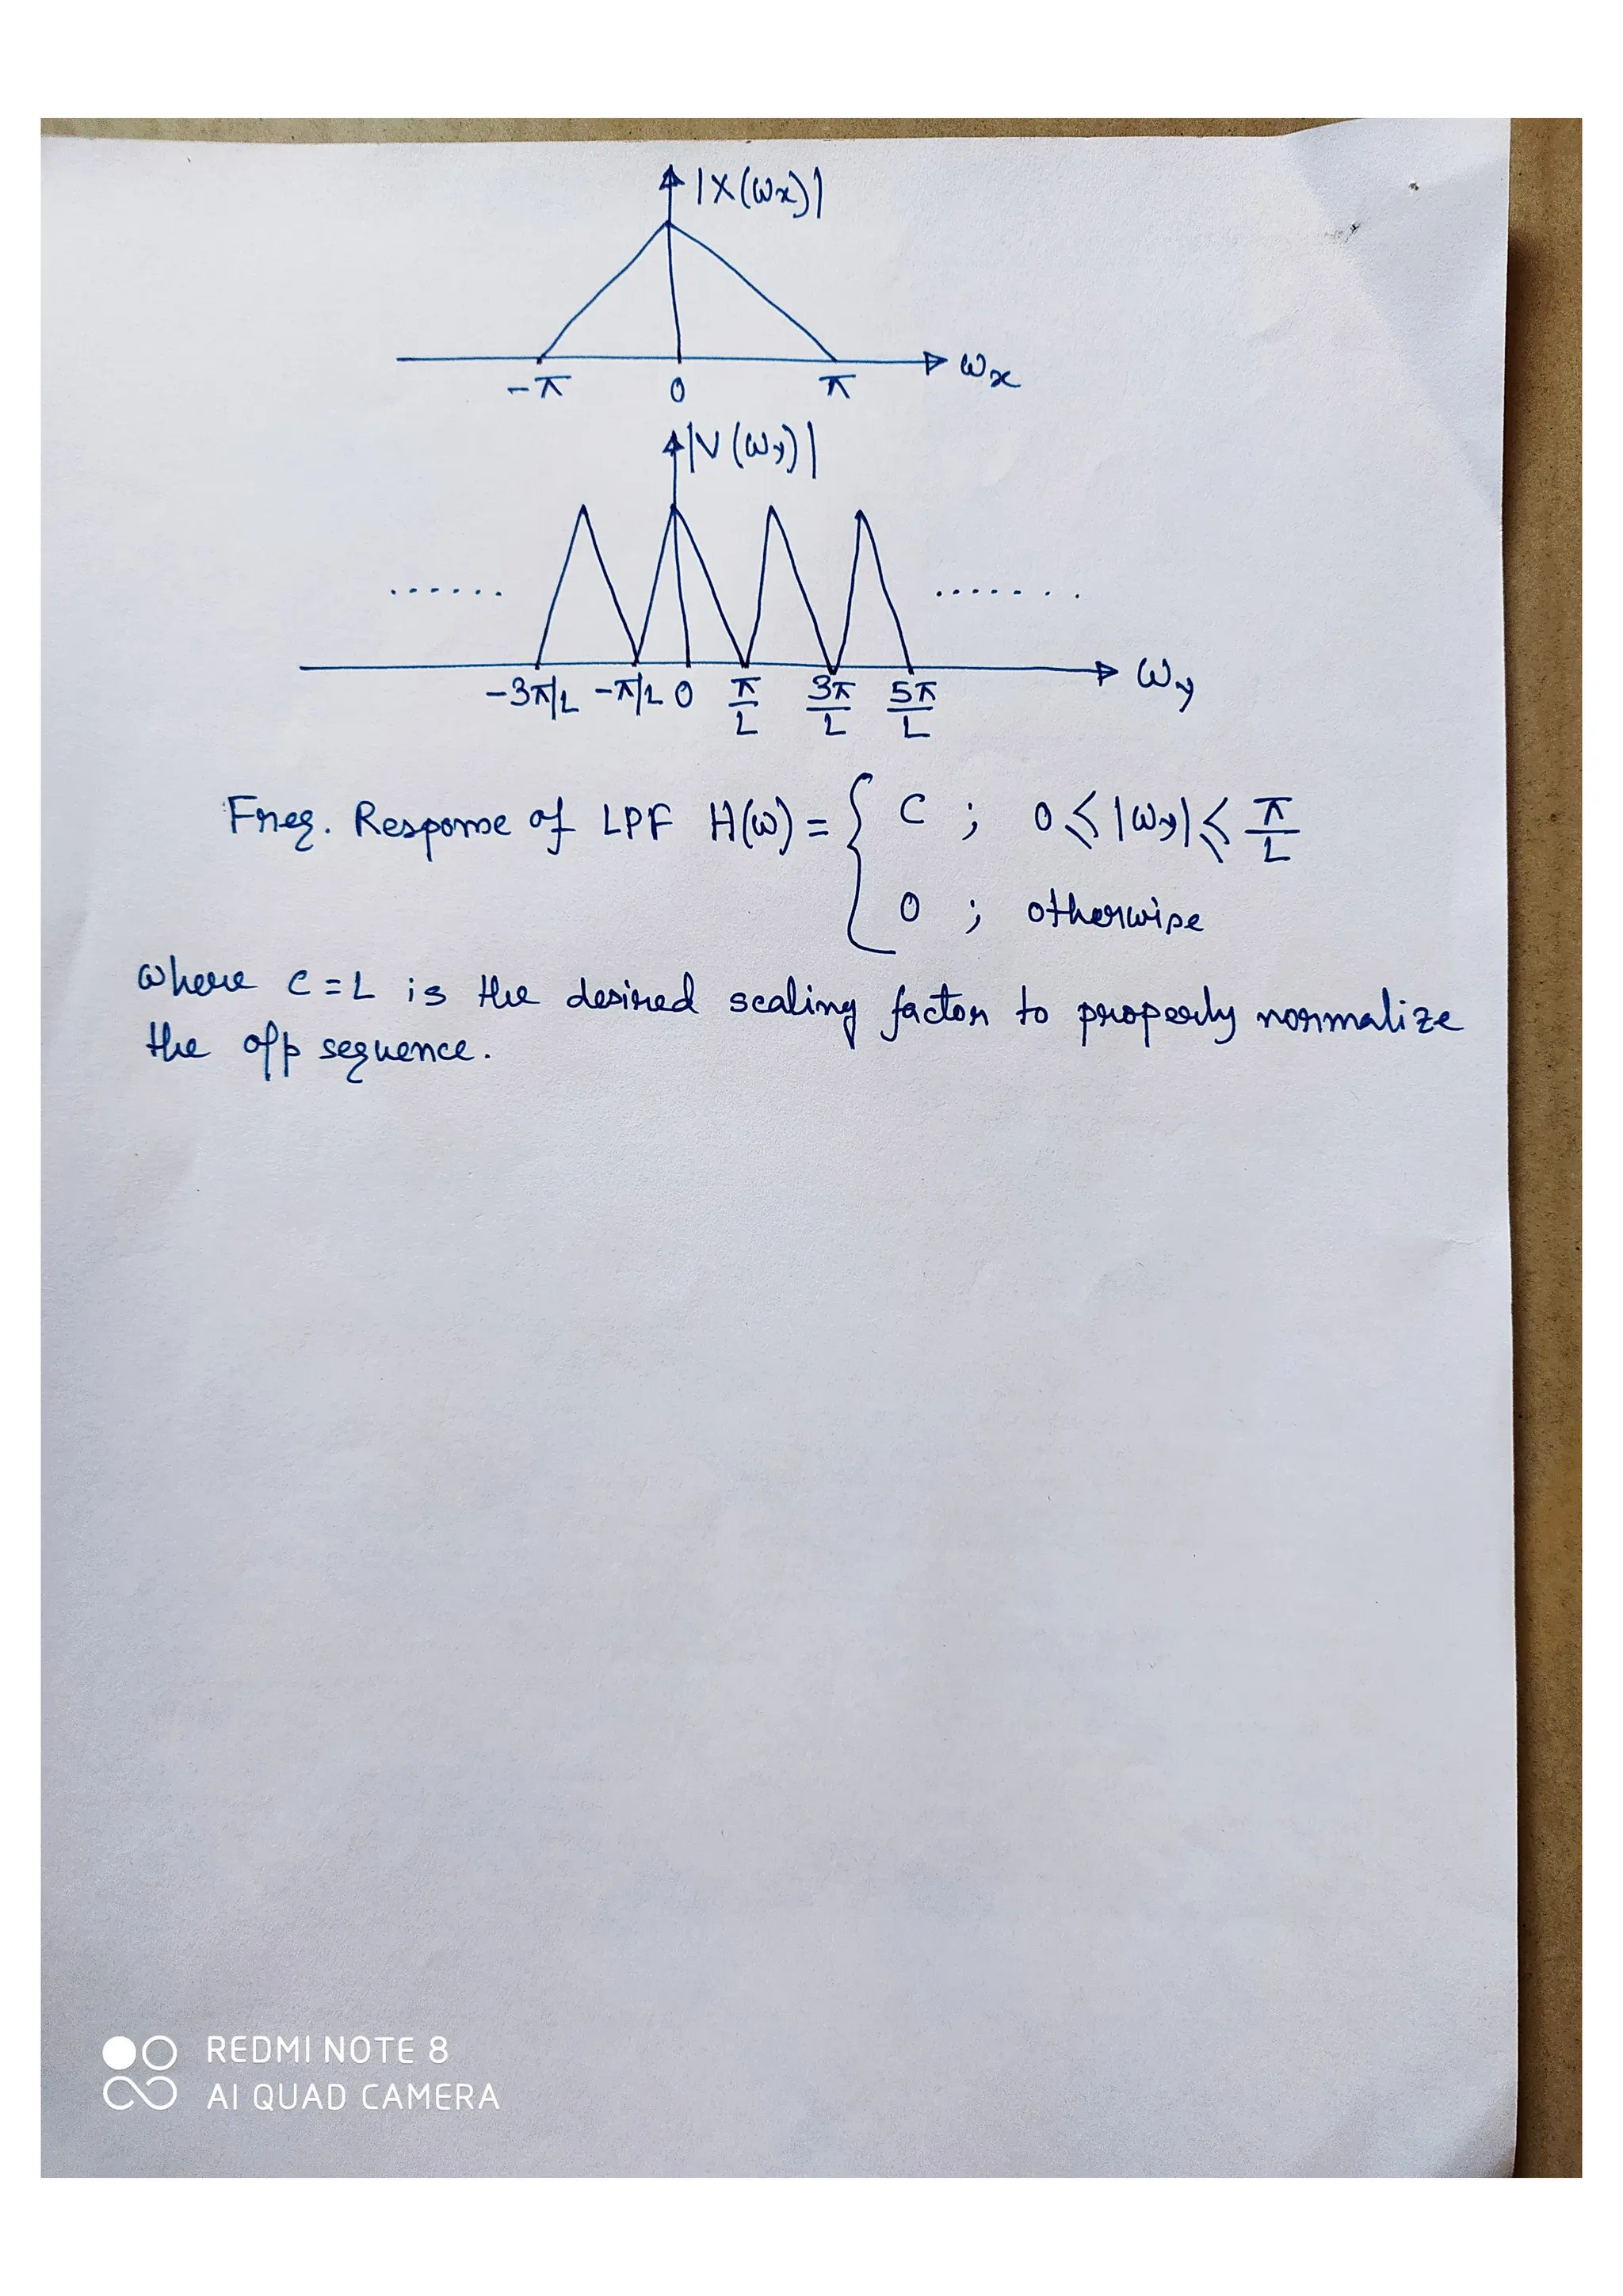 |X(ωx)|
-π 0 π ωx
|V(ωy)|
...... ........
-3π/L -π/L 0 π/L 3π/L 5π/L ωy
Freq. Response of LPF H(ω) = { C ; 0 ≤ |ωy| ≤ π/L
0 ; otherwise
where C = L is the desired scaling factor to properly normalize
the o/p sequence.
REDMI NOTE 8
AI QUAD CAMERA